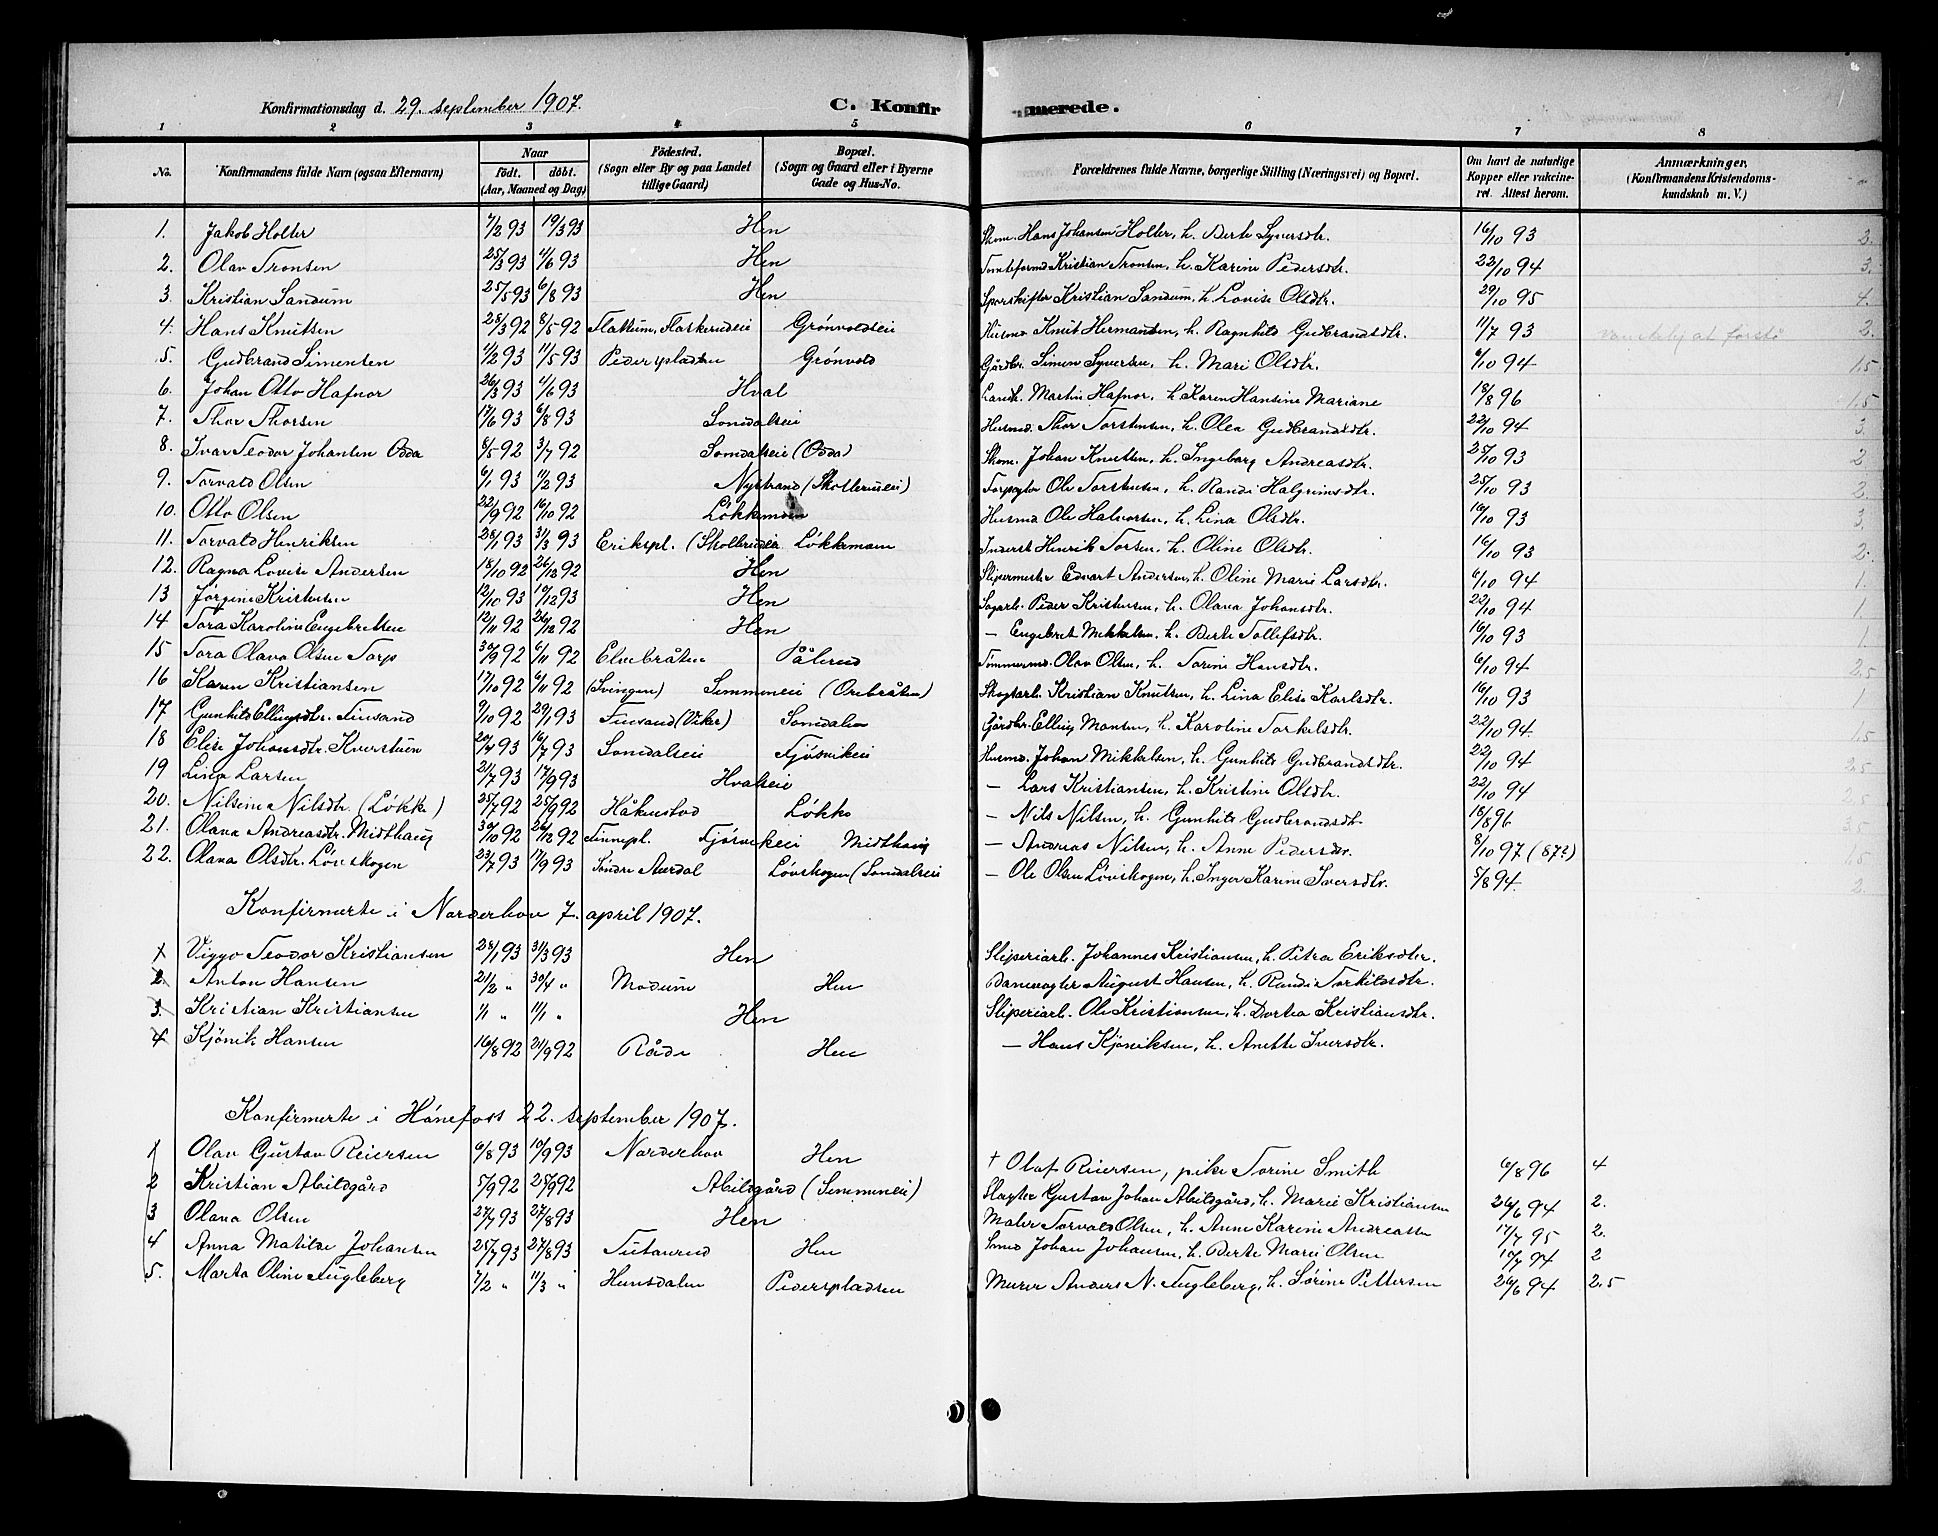 Konfirmationsdag d. 29. september 1907. C. Konfirmerede.
1 2 3 4 5 6 7 8
No. Konfirmandens fulde Navn (ogsaa Efternavn) Naar födt. döbt. (Aar, Maaned og Dag) Födested. (Sogn eller By og paa Landet tillige Gaard) Bopæl. (Sogn og Gaard eller i Byerne Gade og Hus-No. Forældrenes fulde Navne, borgerlige Stilling (Næringsvei) og Bopæl. Om havt de naturlige Kopper eller vakcineret. Attest herom. Anmærkninger, (Konfirmandens Kristendomskundskab m. V.)
1. Jakob Holter 7/2 93 19/3 93 Hen Skom. Hans Johansen Holter, h. Berte Syversdtr. 16/10 93 2.
2. Olav Tronsen 25/3 93 4/6 93 Hen Tomteformd Kristian Tronsen, h. Karine Pedersdtr. 22/10 94 3.
3. Kristian Sandum 25/5 93 6/8 93 Hen Sporskifter Kristian Sandum, h. Lovise Olsdtr. 29/10 95 4.
4. Hans Knutsen 28/3 92 8/5 92 Flattum, Flaskerudeie Grönvoldseie Husmd Knut Hermansen, h. Ragnhild Gudbrandsdtr. 11/7 93 2.
5. Gudbrand Simensen 1/2 93 11/5 93 Pederspladsen Grönvold Gårdbr. Simen Syversen, h. Mari Olsdtr. 6/10 94 1,5
6. Johan Otto Hafnor 26/3 93 4/6 93 Hval Landh. Martin Hafnor, h. Karen Hansine Mariane 18/8 96 1,5
7. Thor Thorsen 17/6 93 6/8 93 Somdalseie Husmd. Thor Torstensen, h. Olea Gudbrandsdtr. 22/10 94 3.
8. Ivar Teodor Johansen Odda 8/5 92 3/7 92 Somdalseie (Odda) Skom. Johan Knutsen, h. Ingeborg Andreasdtr. 25/10 93 2
9. Torvald Olsen 6/1 93 11/2 93 Nystrand (Skollerudeie) Ole Torstensen, h. Randi Halgrimsdtr. 25/10 93 2.
10. Otto Olsen 22/9 92 16/10 92 Lökkemoen Husmd Ole Halvorsen, h. Lina Olsdtr. 16/10 93 3.
11. Torvald Henriksen 28/1 93 31/3 93 Erikspl. (Skollerudeie Lökkemoen Inderst Henrik Torsen, h. Oline Olsdtr. 16/10 93 2.
12. Ragna Lovise Andersen 18/10 92 26/12 92 Hen Slipermester Edvart Andersen, h. Oline Marie Larsdtr. 6/10 94 1.
13 Jörgine Kristensen 12/10 93 19/12 93 Hen Sagarb. Peder Kristensen, h. Olava Johansdtr. 22/10 94 1.
14 Tora Karoline Engebretsen 12/11 92 26/12 92 Hen — Engebret Mikkelsen, h. Berte Tollefsdtr. 16/10 93 1.
15 Tora Olava Olsen Torp 30/9 92 6/11 92 Elvebråten Pålerud Tömmermd. Olav Olsen, h. Torine Hansdtr. 6/10 94 2,5
16 Karen Kristiansen 17/10 92 6/11 92 (Svingen) Semmeneie (Orebråten) Skogsarb. Kristian Knutsen, h. Lina Elise Karlsdtr. 16/10 93 1
17 Gunhild Ellingsdtr. Finsand 9/10 92 29/1 93 Finsand (Viker) Somdalen Gårdbr. Elling Monsen, h. Karoline Torkelsdtr. 22/10 94 1,5
18 Elise Johansdtr. Kverstuen 20/4 93 16/7 93 Somdalseie Fjösvikeie Husmd. Johan Mikkelsen, h. Gunhild Gudbrandsdtr. 22/10 94 2,5
19 Lina Larsen 21/7 93 17/9 93 Hvalseie — Lars Kristiansen, h. Kristine Olsdtr. 22/10 94 2,5
20. Nilsine Nilsdtr. (Lökke) 25/7 92 25/9 92 Håkenstad Lökke — Nils Nilsen, h. Gunhild Gudbrandsdtr. 18/8 96 3,5
21. Olava Andreasdtr. Midthaug 30/10 92 26/12 92 Finnepl. Fjösvikeie Midthaug — Andreas Nilsen, h. Anne Pedersdtr. 8/10 97 (87?) 1,5
22. Olava Olsdtr. Lövskogen 23/7 93 17/9 93 Söndre Aurdal Lövskogen (Somdalseie — Ole Olsen Lövskogen, h. Inger Karine Iversdtr. 5/8 94. 2.
Konfirmerte i Norderhov 7. april 1907.
1 Viggo Teodor Kristiansen 28/1 93 31/3 93 Hen Sliperiarb. Johannes Kristiansen, h. Petra Eriksdtr.
2. Anton Hansen 21/2 " 30/4 " Modum Hen Banevogter August Hansen, h. Randi Torkildsdtr.
3. Kristian Kristiansen 1/1 " 11/1 " Hen Sliperiarb. Ole Kristiansen, h. Dortea Kristiansdtr.
4 Kjönik Hansen 16/8 92 21/9 92 Råde Hen — Hans Kjöniksen, h. Anette Iversdtr.
Konfirmerte i Hönefoss 22. september 1907.
1 Olav Gustav Reiersen 6/8 93 10/9 93 Norderhov Hen † Olaf Reiersen, pike Torine Smith 6/8 96 4
2 Kristian Abildgård 5/9 92 25/9 92 Abildgård (Semmeneie) Slagter Gustav Johan Abildgård, h. Marie Kristiansen 26/6 94 2.
3 Olava Olsen 27/7 93 27/8 93 Hen Maler Torvald Olsen, h. Anne Karine Andreassen 17/7 95 2.
4 Anna Matilde Johansen 25/7 93 27/8 93 Tutanrud Hen Smed Johan Johansen, h. Berte Marie Olsen 10/7 94 2
5. Marta Oline Fugleberg 7/2 " 11/3 " Hunsdalen Pederspladsen Murer Anders N. Fugleberg, h. Sörine Pettersen 26/6 94 2,5